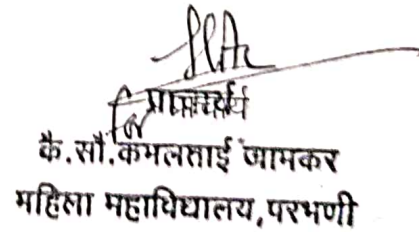 For प्राचार्य
कै.सौ.कमलताई जामकर
महिला महाविद्यालय,परभणी